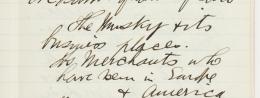 the Musky & its
business places.
to Merchants who
have been in Europe
& America